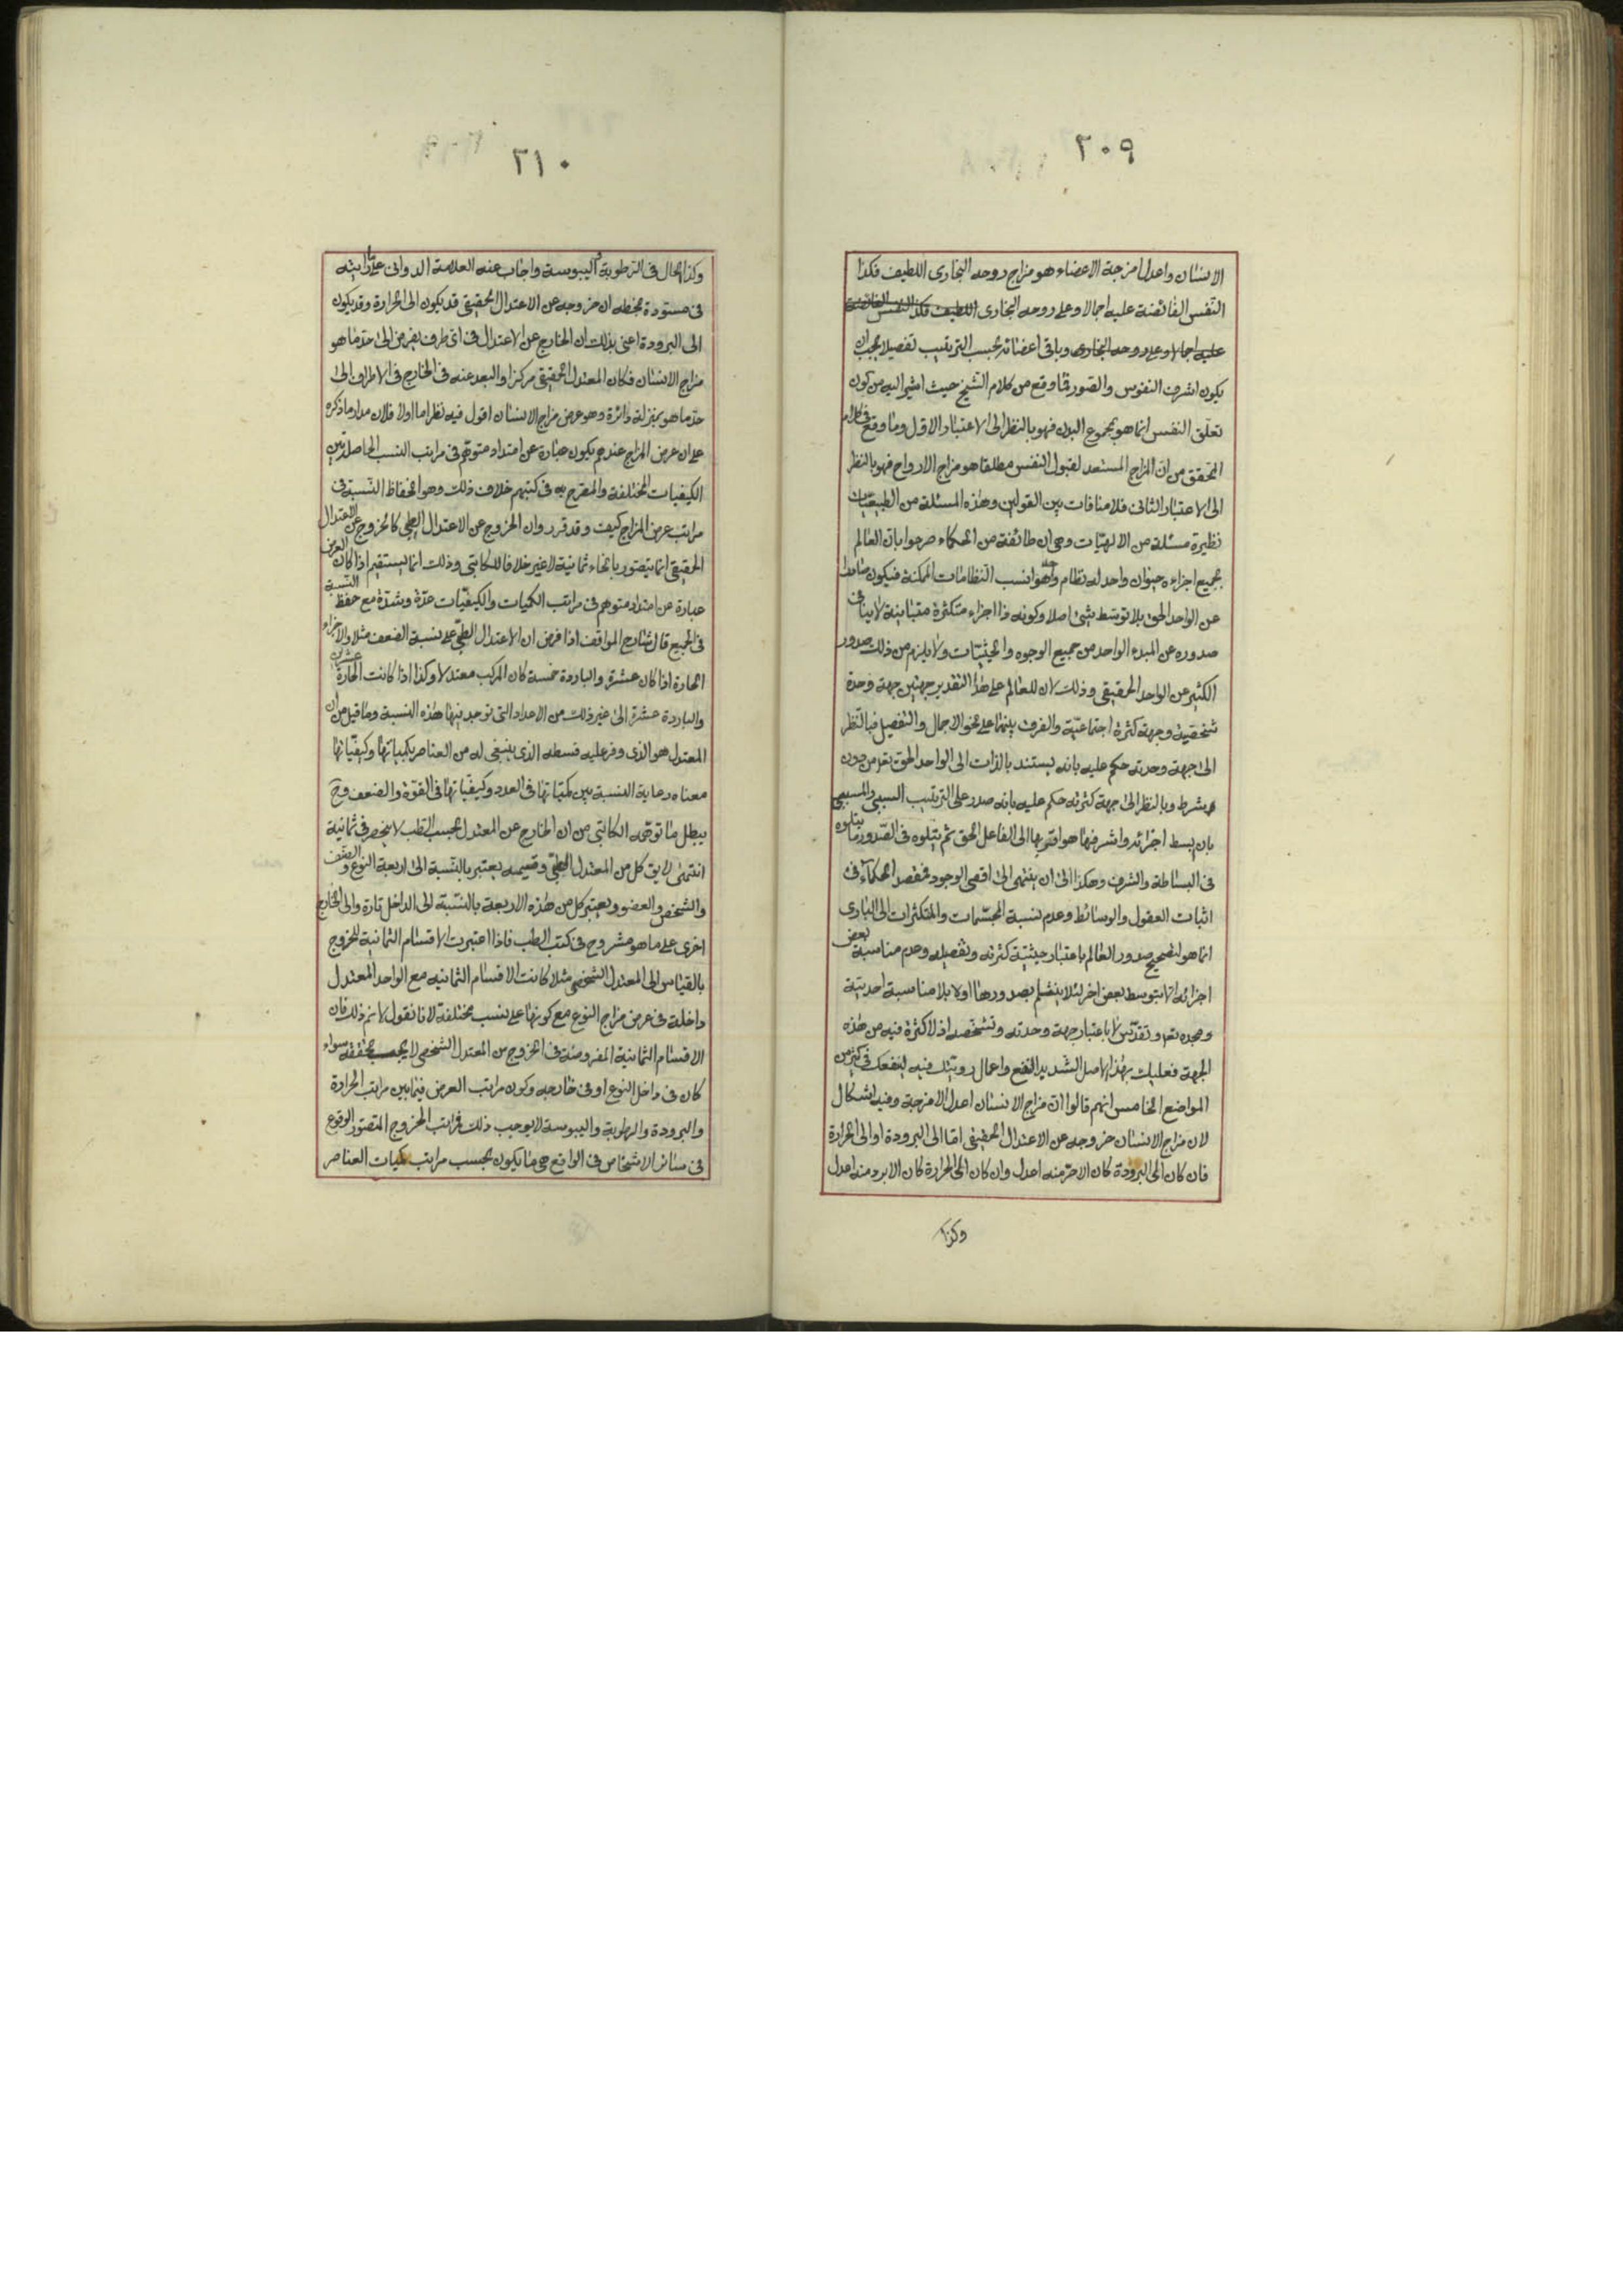 ٢٠٩
الانسان واعدل امزجة الاعضاء هو مزاج روحه البخارى اللطيف فكذا
النفس الفائضة عليه اجمالا وعلى روحه البخارى اللطيف فكذا النفس الفائضة
عليه اجمالا وعلى روحه البخارى وباقى اعضائه بحسب الترتيب تفصيلا يجب ان
يكون اشرف النفوس والصور فما وقع من كلام الشيخ حيث اشير اليه من كون
تعلق النفس انما هو بمجموع البدن فهو بالنظر الى الاعتبار الاول وما وقع فى كلام
المحقق من ان المزاج المستعد لقبول النفس مطلقا هو مزاج الارواح فهو بالنظر
الى الاعتبار الثانى فلا منافات بين القولين وهذه المسئلة من الطبيعيات
نظيرة مسئلة من الالهيات وهى ان طائفة من الحكماء صرحوا بان العالم
بجميع اجزاءه حيوان واحد له نظام واحد هو انسب النظامات الممكنة فيكون صادرا
عن الواحد الحق بلا توسط شىء اصلا وكونه ذا اجزاء متكثرة متباينة لا ينافى
صدوره عن المبدء الواحد من جميع الوجوه والحيثيات ولا يلزم من ذلك صدور
الكثير عن الواحد الحقيقى وذلك لان للعالم على هذا التقدير جهتين جهة وحدة
شخصية وجهة كثرة اجتماعية والفرق بينهما على نحو الاجمال والتفصيل فبالنظر
الى جهة وحدته حكم عليه بانه يستند بالذات الى الواحد الحق تعالى من دون
شرط وبالنظر الى جهة كثرته حكم عليه بانه صدر على الترتيب السببى والمسببى
بان ابسط اجزائه واشرفها هو اقربها الى الفاعل الحق ثم يتلوه فى الصدور ما يتلوه
فى البساطة والشرف وهكذا الى ان ينتهى الى اقصى الوجود فمقصد الحكماء فى
اثبات العقول والوسائط وعدم نسبة المجسمات والمتكثرات الى البارى
انما هو لتصحيح صدور العالم باعتبار حيثية كثرته وتفصيله وعدم مناسبة بعض
اجزائه الا بتوسط بعض اخر لئلا ينثلم بصدورها اولا بلا مناسبة احديته
ومجده تعالى وتقدس لا باعتبار جهة وحدته وتشخصه اذ لا كثرة فيه من هذه
الجهة فعليك بهذا الاصل الشديد النفع واعمال رويتك فيه لينفعك فى كثير من
المواضع الخامس انهم قالوا ان مزاج الانسان اعدل الامزجة وفيه اشكال
لان مزاج الانسان خروجه عن الاعتدال الحقيقى اما الى البرودة او الى الحرارة
فان كان الى البرودة كان الاحر منه اعدل وان كان الى الحرارة كان الابرد منه اعدل
وكذا
٢١٠
وكذا الحال فى الرطوبة واليبوسة واجاب عنه العلامة الدوانى على ما رايته
فى مسودة بخطه ان خروجه عن الاعتدال الحقيقى قد يكون الى الحرارة وقد يكون
الى البرودة اعنى بذلك ان الخارج عن الاعتدال فى اى طرف يفرض الى حد ما هو
مزاج الانسان فكان المعتدل الحقيقى مركزا والبعد عنه فى الخارج فى الاطراف الى
حد ما هو بمنزلة دائرة وهو عرض مزاج الانسان اقول فيه نظر اما اولا فلان مدار ما ذكره
على ان عرض المزاج عندهم يكون عبارة عن امتداد متوهم فى مراتب النسب الحاصلة بين
الكيفيات المختلفة والمصرح به فى كتبهم خلاف ذلك وهو انحفاظ النسبة فى
مراتب عرض المزاج كيف وقد قرروا ان الخروج عن الاعتدال الطبى كالخروج عن الاعتدال
الحقيقى انما يتصور بانحاء ثمانية لا غير خلافا للكاتبى وذلك انما يستقيم اذا كان العرض
عبارة عن امتداد متوهم فى مراتب الكميات والكيفيات عدة وشدة مع حفظ النسبة
فى الجميع قال شارح المواقف اذا فرض ان الاعتدال الطبى على نسبة الضعف مثلا والاجزاء
الحارة اذا كان عشرة والباردة خمسة كان المركب معتدلا وكذا اذا كانت الحارة عشرين
والباردة عشرة الى غير ذلك من الاعداد التى توجد فيها هذه النسبة وما قيل من ان
المعتدل هو الذى وفر عليه قسطه الذى ينبغى له من العناصر بكمياتها وكيفياتها
معناه رعاية النسبة بين كمياتها فى العدد وكيفياتها فى القوة والضعف وح
يبطل ما توهمه الكاتبى من ان الخارج عن المعتدل بحسب الطب لا ينحصر فى ثمانية
انتهى لا يق كل من المعتدل الطبى وقسيمه يعتبر بالنسبة الى اربعة النوع والصنف
والشخص والعضو ويعتبر كل من هذه الاربعة بالنسبة الى الداخل تارة والى الخارج
اخرى على ما هو مشروح فى كتب الطب فاذا اعتبرت الاقسام الثمانية للخروج
بالقياس الى المعتدل الشخصى مثلا كانت الاقسام الثمانيه مع الواحد المعتدل
داخلة فى عرض مزاج النوع مع كونها على نسب مختلفة لانا نقول لا نم ذلك فان
الاقسام الثمانية المفروضة فى الخروج من المعتدل الشخصى لا يجب تحققه سواء
كان فى داخل النوع او فى خارجه وكون مراتب العرض فيما بين مراتب الحرارة
والبرودة والرطوبة واليبوسة لا يوجب ذلك فمراتب الخروج المتصور الوقوع
فى سائر الاشخاص فى الواقع هى ما يكون بحسب مراتب كميات العناصر